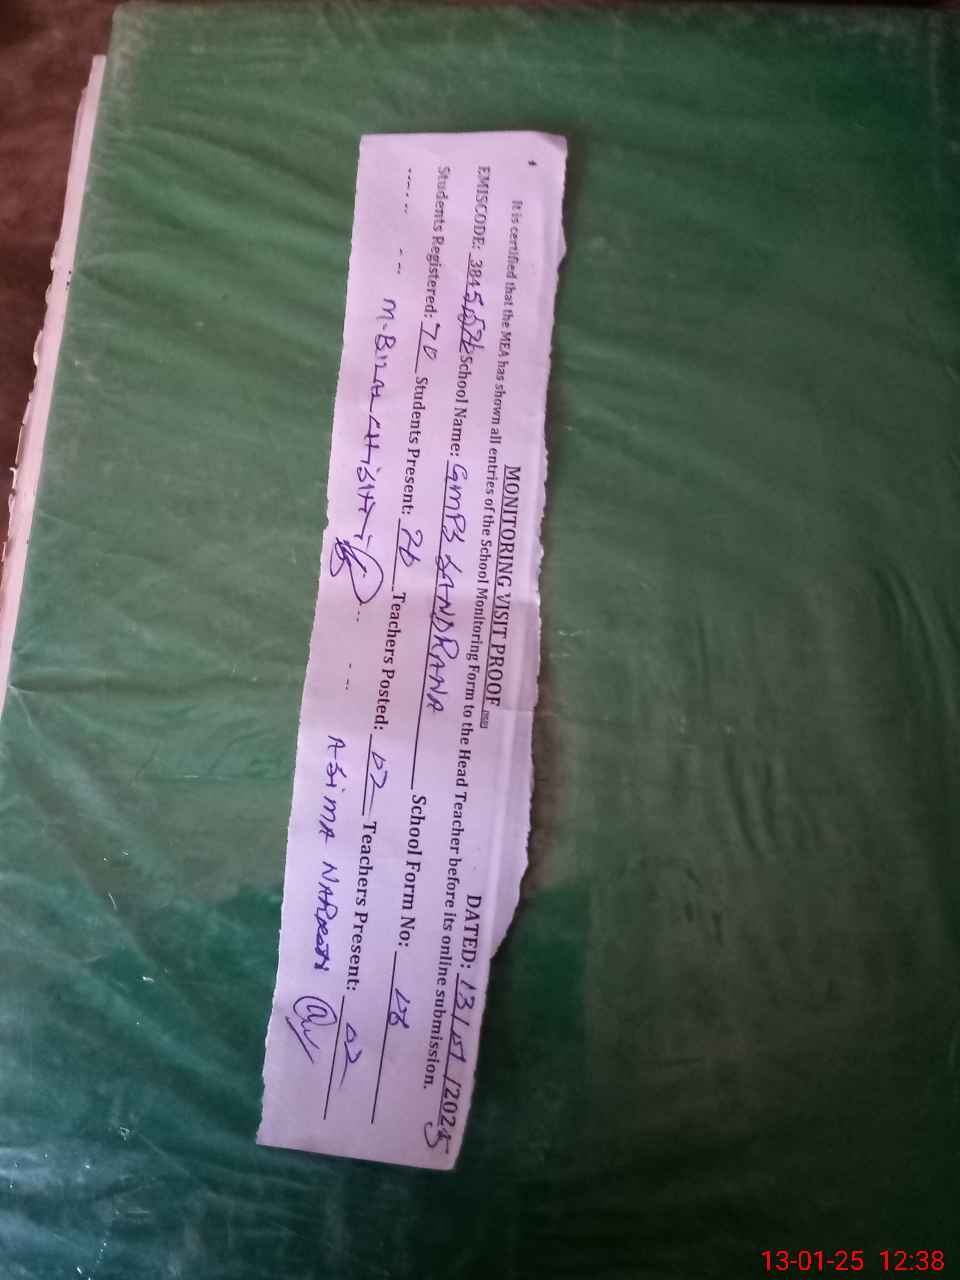 MONITORING VISIT PROOF
DATED: 13/01/2025
It is certified that the MEA has shown all entries of the School Monitoring Form to the Head Teacher before its online submission.
EMISCODE: School Name: GMPS SANDRANA School Form No: 08
Students Registered: 70 Students Present: Teachers Posted: 02 Teachers Present: 02
M. BILAL CHISHTI ASIMA
13-01-25 12:38